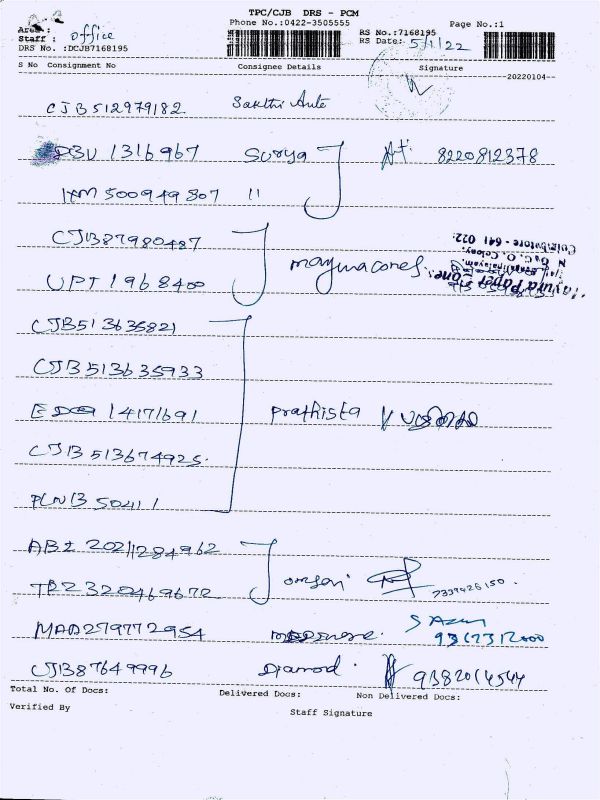 TPC/CJB DRS - PCM
Phone No.:0422-3505555
Page No.:1
Area :
Staff : office
RS No.:7168195
DRS No. :DCJB7168195
RS Date: 5/1/22
S No Consignment No Consignee Details Signature
20220104
CJB512979182 Sakthi Auto
1316967 Surya 8220812378
IXM 500949307 11
CJB87980487
UPT1968400
Mayura Paper Cones
N.G.G.O. Colony,
Coimbatore - 641 022.
CJB513635821
CJB513635933
14171691 prathista
CJB513674925
PLN135041 1
ABI 20211284962
TRZ320469672 7339426150.
MAA279772954
CJB87649996 Diamond. 9382014544
Total No. Of Docs: Delivered Docs: Non Delivered Docs:
Verified By Staff Signature